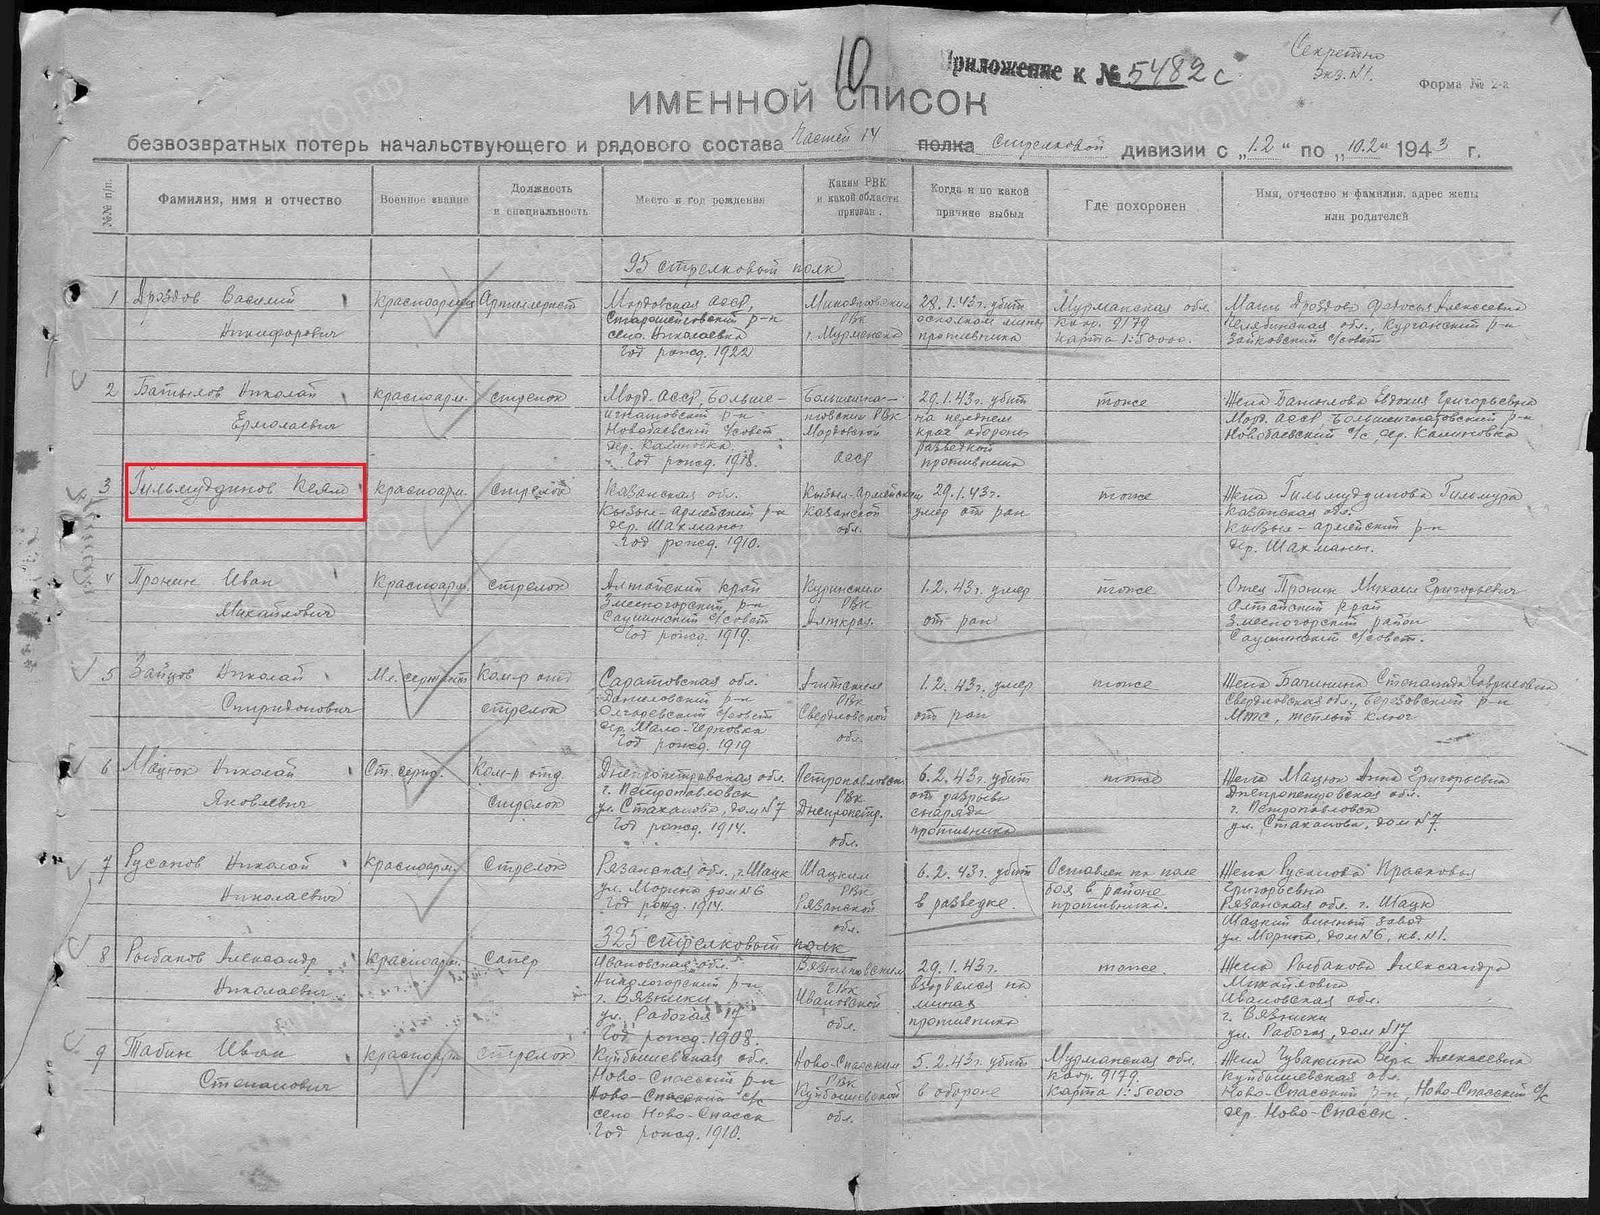 10
Приложение к № 5482с
Секретно
Экз. №1.
Форма № 2-а
ИМЕННОЙ СПИСОК
безвозвратных потерь начальствующего и рядового состава Частей 14 полка стрелковой дивизии с „1.2" по „10.2" 1943 г.
№№ п/п. Фамилия, имя и отчество Военное звание Должность и специальность Место и год рождения Каким РВК и какой области призван. Когда и по какой причине выбыл Где похоронен Имя, отчество и фамилия, адрес жены или родителей
95 стрелковый полк
1 Дроздов Василий Красноармеец Артиллерист Мордовская АССР 28.1.43г. убит Мурманская обл. Мать Дроздова Федосья Алексеевна
Никифорович Старошайговский р-н РВК осколком мины квдр. 9179 Челябинская обл., Курганский р-н
село Николаевка г. Мурманска противника карта 1:50000. Зайковский с/совет
Год рожд. 1922
2 Батылов Николай красноарм. стрелок Морд. АССР, Больше- 29.1.43г. убит тоже Жена Батылова Евдокия Григорьевна
Ермолаевич игнатовский р-н РВК на переднем Морд. АССР, Большеигнатовский р-н
Новобаевский с/совет Мордовской крае обороны Новобаевский с/с дер. Калиновка
дер. Калиновка АССР разведкой
Год рожд. 1918. противника
3 Гильмутдинов Келям красноарм. стрелок Казанская обл. Кызыл-Армейским 29.1.43г. тоже Жена Гильмутдинова Гильмура
Кызыл-Армейский р-н Казанской умер от ран Казанская обл.
дер. Шахманы обл. Кызыл-Армейский р-н
Год рожд. 1910. дер. Шахманы.
4 Пронин Иван Красноарм. стрелок Алтайский край Курьинским 1.2.43г. умер тоже Отец Пронин Михаил Григорьевич
Михайлович Змеиногорский р-н РВК от ран Алтайский край
Саушинский с/совет Алткрая. Змеиногорский район
Год рожд. 1919. Саушинский с/совет.
5 Зайцов Николай Мл. сержант Ком-р отд Саратовская обл. Ачитским 1.2.43г. умер тоже Жена Бачинина Степанида Гавриловна
Спиридонович стрелок Даниловский р-н РВК от ран Свердловская обл., Березовский р-н
с/совет Свердловской МТС, теплый ключ
обл.
Год рожд. 1919
6 Мацюк Николай Ст. серж. Ком-р отд. Днепропетровская обл. Петропавловским 6.2.43г. убит тоже Жена Мацюк Анна Григорьевна
Яковлевич стрелок г. Петропавловск РВК от разрыва Днепропетровская обл.
ул. Стаханова, дом №7 Днепропетр. снаряда г. Петропавловск
Год рожд. 1914. обл. противника ул. Стаханова, дом №7.
7 Русанов Николай Красноарм. Стрелок Рязанская обл., г. Шацк Шацким 6.2.43г. убит Оставлен на поле Жена Русанова Прасковья
Николаевич ул. Морина дом №6 РВК в разведке. боя в районе Григорьевна
Год рожд. 1914. Рязанской противника. Рязанская обл. г. Шацк
обл. Шацкий винный завод
ул. Морина, дом №6, кв. №1.
325 стрелковый полк
8 Рыбаков Александр Красноарм. Сапер Ивановская обл. Вязниковским 29.1.43г. тоже. Жена Рыбакова Александра
Николаевич Никологорский р-н ГВК взорвался на Михайловна
г. Вязники Ивановской минах Ивановская обл.
ул. Рабочая 17 обл. противника г. Вязники
Год рожд. 1908. ул. Рабочая, дом №17.
9 Табин Иван Красноарм. стрелок Куйбышевская обл. Ново-Спасским 5.2.43г. убит Мурманская обл. Жена Чувакина Вера Алексеевна
Степанович Ново-Спасский р-н РВК в обороне квдр. 9179. Куйбышевская обл.
Ново-Спасский с/с Куйбышевской карта 1:50000 Ново-Спасский р-н, Ново-Спасский с/с
село Ново-Спасск обл. дер. Ново-Спасск.
Год рожд. 1910.